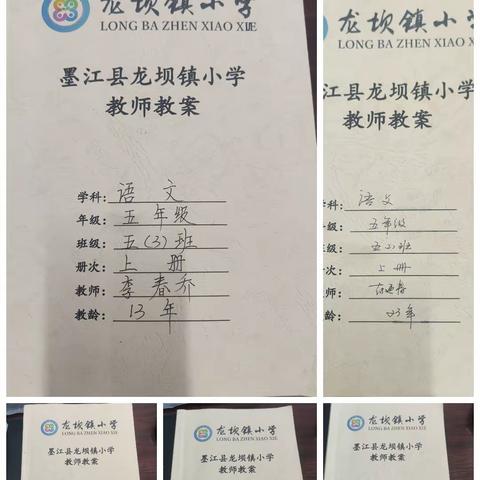 龙坝镇小学
LONG BA ZHEN XIAO XUE
墨江县龙坝镇小学
教师教案
学科: 语 文
年级: 五 年 级
班级: 五(3)班
册次: 上 册
教师: 李春乔
教龄: 13 年
龙坝镇小学
LONG BA ZHEN XIAO XUE
江县龙坝镇小学
教师教案
学科: 语文
级: 五年级
级:
次: 上 册
师:
龄: 23年
龙坝镇小学
LONG BA ZHEN XIAO XUE
墨江县龙坝镇小学
教师教案
龙坝镇小学
LONG BA ZHEN XIAO XUE
墨江县龙坝镇小学
教师教案
龙坝镇小学
LONG BA ZHEN XIAO XUE
墨江县龙坝镇小学
教师教案